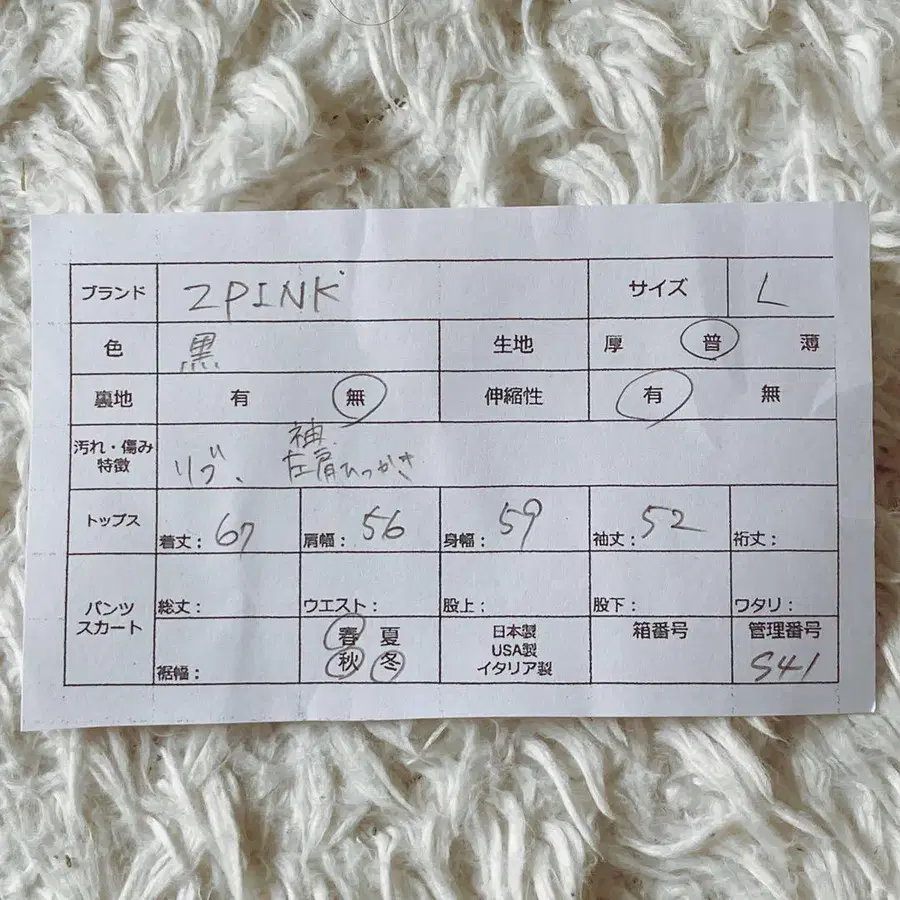 ブランド 2PINK サイズ L
色 黒 生地 厚 普 薄
裏地 有 無 伸縮性 有 無
汚れ・傷み
特徴
リブ、
袖
左肩ひっかき
トップス 着丈： 67 肩幅： 56 身幅： 59 袖丈： 52 裄丈：
パンツ
スカート
総丈： ウエスト： 股上： 股下： ワタリ：
裾幅：
春 夏
秋 冬
日本製
USA製
イタリア製
箱番号
管理番号
S41